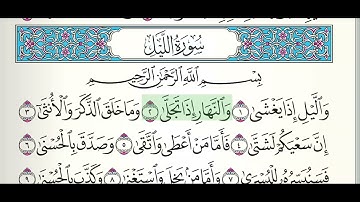 سُورَةُ اللَّيْلِ
بِسْمِ اللَّهِ الرَّحْمَٰنِ الرَّحِيمِ
وَاللَّيْلِ إِذَا يَغْشَىٰ ١ وَالنَّهَارِ إِذَا تَجَلَّىٰ ٢ وَمَا خَلَقَ الذَّكَرَ وَالْأُنثَىٰ ٣
إِنَّ سَعْيَكُمْ لَشَتَّىٰ ٤ فَأَمَّا مَنْ أَعْطَىٰ وَاتَّقَىٰ ٥ وَصَدَّقَ بِالْحُسْنَىٰ ٦
فَسَنُيَسِّرُهُ لِلْيُسْرَىٰ ٧ وَأَمَّا مَنْ بَخِلَ وَاسْتَغْنَىٰ ٨ وَكَذَّبَ بِالْحُسْنَىٰ ٩